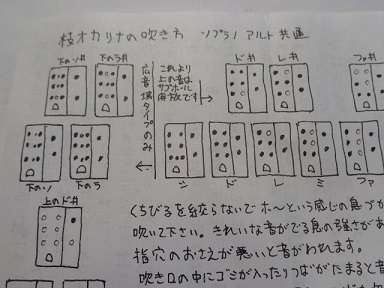 枝オカリナの吹き方 ソプラノ アルト 共通
下のソ# 下のラ#
広音域タイプのみ
これより
上の音は
サブホール
ド# レ# ファ#
下のソ 下のラ
シ ド レ ミ ファ
上のド#
くちびるを絞らないでホ〜という感じの息づか
吹いて下さい。きれいな音がでる息の強さがあ
指穴のおさえが悪いと音がわれます。
吹き口の中にゴミが入ったりつばがたまると音